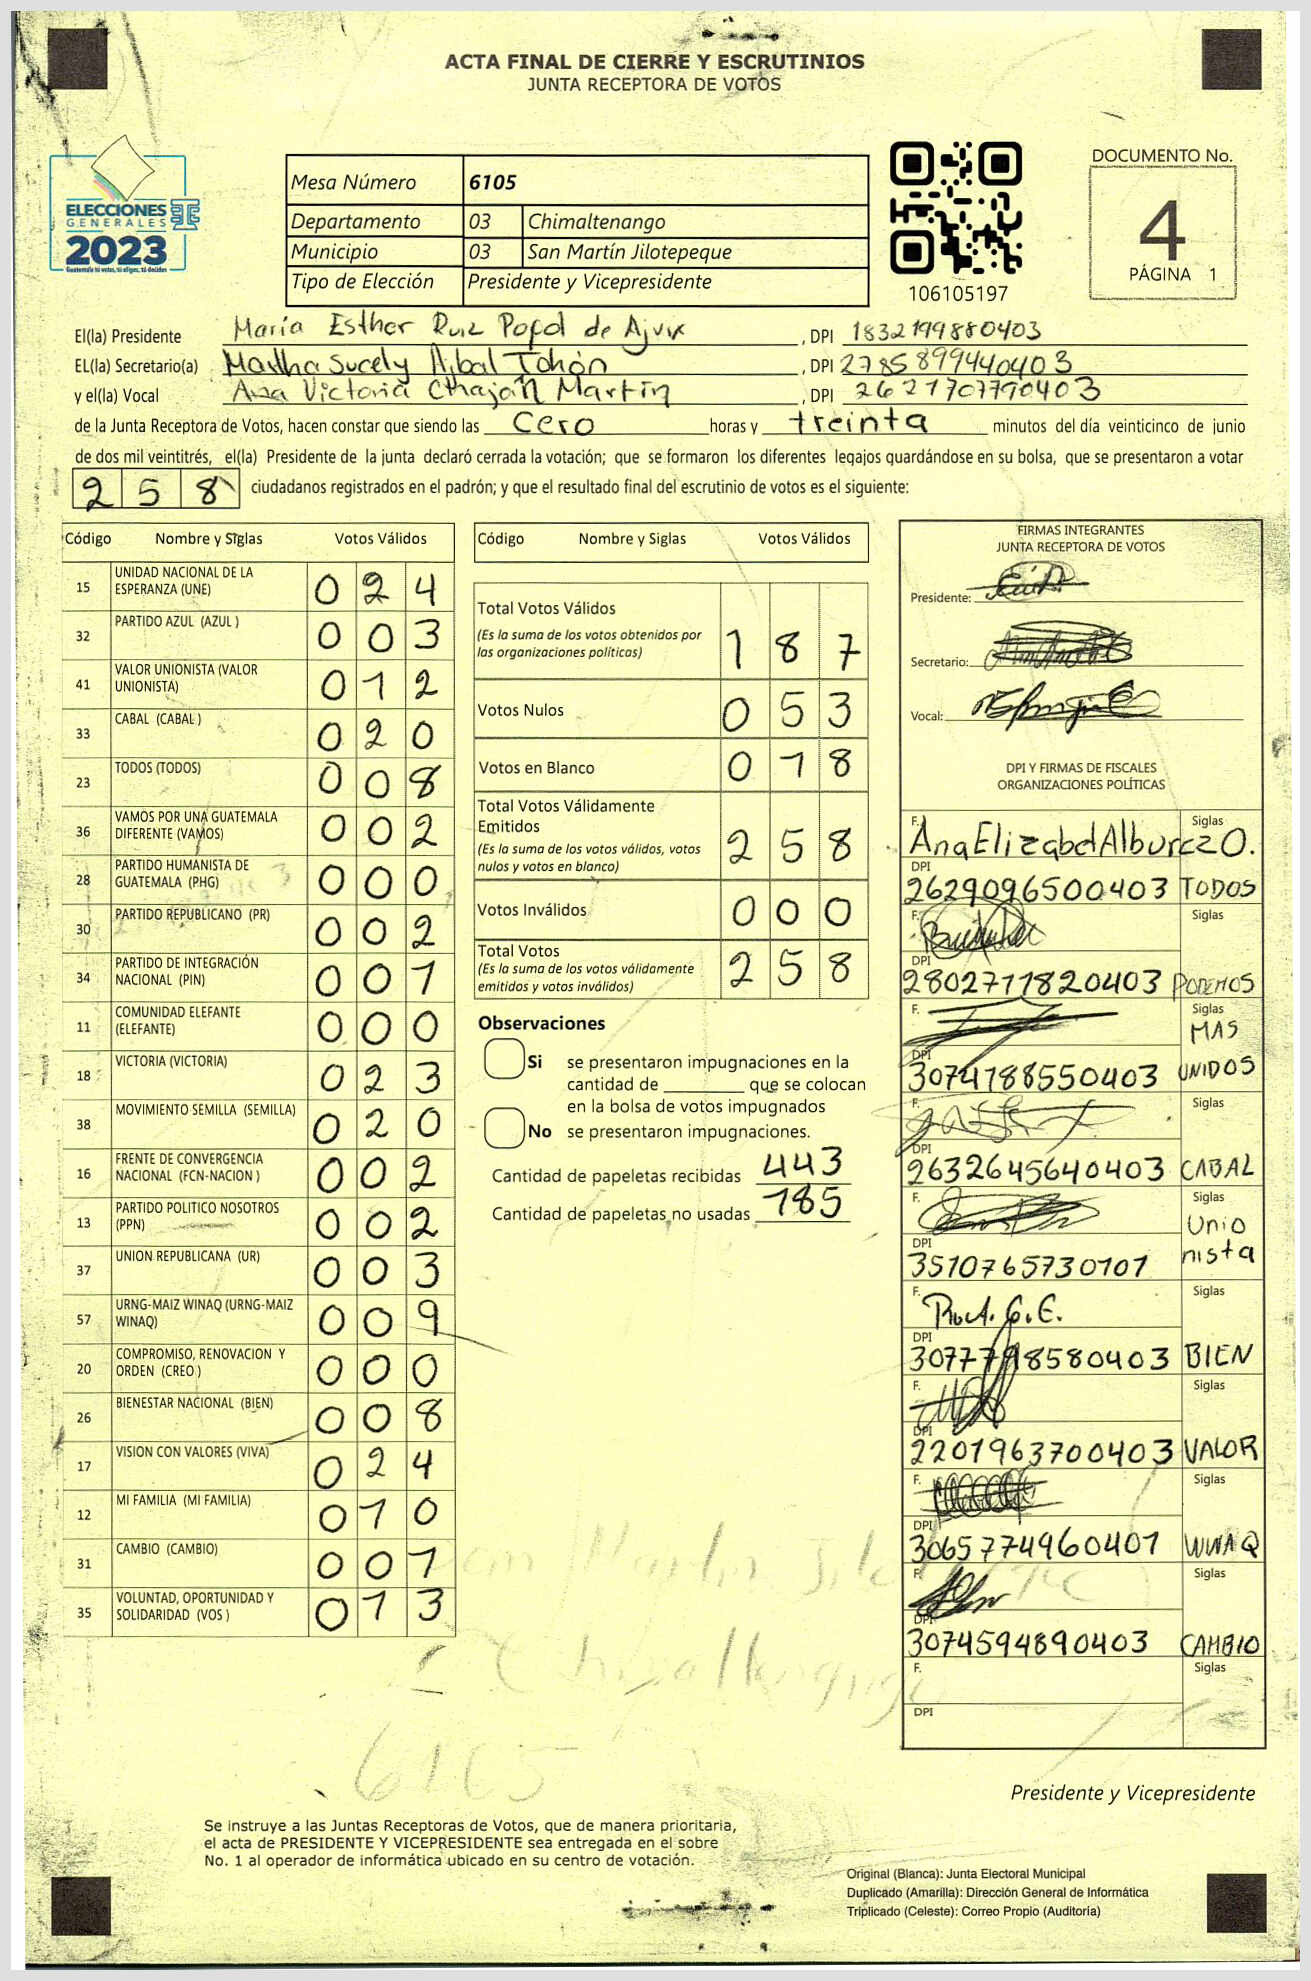 ACTA FINAL DE CIERRE Y ESCRUTINIOS
JUNTA RECEPTORA DE VOTOS
ELECCIONES
GENERALES
2023
Guatemala tú votas, tú eliges, tú decides
Mesa Número 6105
Departamento 03 Chimaltenango
Municipio 03 San Martín Jilotepeque
Tipo de Elección Presidente y Vicepresidente
106105197
DOCUMENTO No.
4
PÁGINA 1
El(la) Presidente María Esther Ruiz Popol de Ajvix, DPI 1832199880403
EL(la) Secretario(a) Martha Sucely Ajbal Tohón, DPI 2785899440403
y el(la) Vocal Ana Victoria Chajón Martín, DPI 2621707790403
de la Junta Receptora de Votos, hacen constar que siendo las Cero horas y treinta minutos del día veinticinco de junio
de dos mil veintitrés, el(la) Presidente de la junta declaró cerrada la votación; que se formaron los diferentes legajos guardándose en su bolsa, que se presentaron a votar
258 ciudadanos registrados en el padrón; y que el resultado final del escrutinio de votos es el siguiente:
Código Nombre y Siglas Votos Válidos
15 UNIDAD NACIONAL DE LA
ESPERANZA (UNE) 024
32 PARTIDO AZUL (AZUL ) 003
41 VALOR UNIONISTA (VALOR
UNIONISTA) 012
33 CABAL (CABAL ) 020
23 TODOS (TODOS) 008
36 VAMOS POR UNA GUATEMALA
DIFERENTE (VAMOS) 002
28 PARTIDO HUMANISTA DE
GUATEMALA (PHG) 000
30 PARTIDO REPUBLICANO (PR) 002
34 PARTIDO DE INTEGRACIÓN
NACIONAL (PIN) 001
11 COMUNIDAD ELEFANTE
(ELEFANTE) 000
18 VICTORIA (VICTORIA) 023
38 MOVIMIENTO SEMILLA (SEMILLA) 020
16 FRENTE DE CONVERGENCIA
NACIONAL (FCN-NACION ) 002
13 PARTIDO POLITICO NOSOTROS
(PPN) 002
37 UNION REPUBLICANA (UR) 003
57 URNG-MAIZ WINAQ (URNG-MAIZ
WINAQ) 009
20 COMPROMISO, RENOVACION Y
ORDEN (CREO ) 000
26 BIENESTAR NACIONAL (BIEN) 008
17 VISION CON VALORES (VIVA) 024
12 MI FAMILIA (MI FAMILIA) 010
31 CAMBIO (CAMBIO) 001
35 VOLUNTAD, OPORTUNIDAD Y
SOLIDARIDAD (VOS ) 013
Código Nombre y Siglas Votos Válidos
Total Votos Válidos
(Es la suma de los votos obtenidos por
las organizaciones políticas) 187
Votos Nulos 053
Votos en Blanco 018
Total Votos Válidamente
Emitidos
(Es la suma de los votos válidos, votos
nulos y votos en blanco) 258
Votos Inválidos 000
Total Votos
(Es la suma de los votos válidamente
emitidos y votos inválidos) 258
Observaciones
Si se presentaron impugnaciones en la
cantidad de ________ que se colocan
en la bolsa de votos impugnados
No se presentaron impugnaciones.
Cantidad de papeletas recibidas 443
Cantidad de papeletas no usadas 185
FIRMAS INTEGRANTES
JUNTA RECEPTORA DE VOTOS
Presidente:
Secretario:
Vocal:
DPI Y FIRMAS DE FISCALES
ORGANIZACIONES POLÍTICAS
F. Siglas
Ana Elizabet Alburez O.
DPI
2629096500403 TODOS
F. Siglas
DPI
2802711820403 PODEMOS
F. Siglas
MAS
DPI
3074188550403 UNIDOS
F. Siglas
DPI
2632645640403 CABAL
F. Siglas
Unio
DPI nista
3510765730101
F. Siglas
DPI
3077798580403 BIEN
F. Siglas
DPI
2201963700403 VALOR
F. Siglas
DPI
3065774960401 WINAQ
F. Siglas
DPI
3074594890403 CAMBIO
F. Siglas
DPI
San Martin Jilotepeque
Chimaltenango
6105
Presidente y Vicepresidente
Se instruye a las Juntas Receptoras de Votos, que de manera prioritaria,
el acta de PRESIDENTE Y VICEPRESIDENTE sea entregada en el sobre
No. 1 al operador de informática ubicado en su centro de votación.
Original (Blanca): Junta Electoral Municipal
Duplicado (Amarilla): Dirección General de Informática
Triplicado (Celeste): Correo Propio (Auditoría)